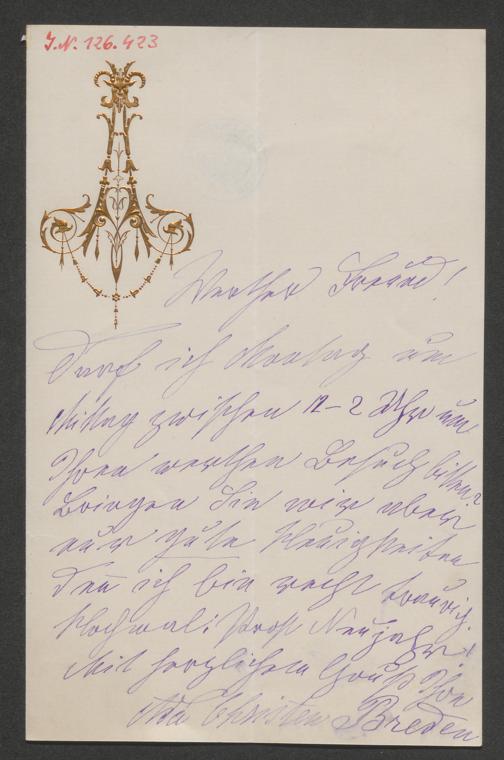 J.N. 126.423
Werther Freund!
Darf ich Montag um
Mittag zwischen 12-2 Uhr um
Ihren werthen Besuch bitten?
Bringen Sie mir aber
nur gute Neuigkeiten
den̄ ich bin recht traurig.
Nochmal: Prost Neujahr!
Mit herzlichem Gruß Ihre
Ada Christen Breden